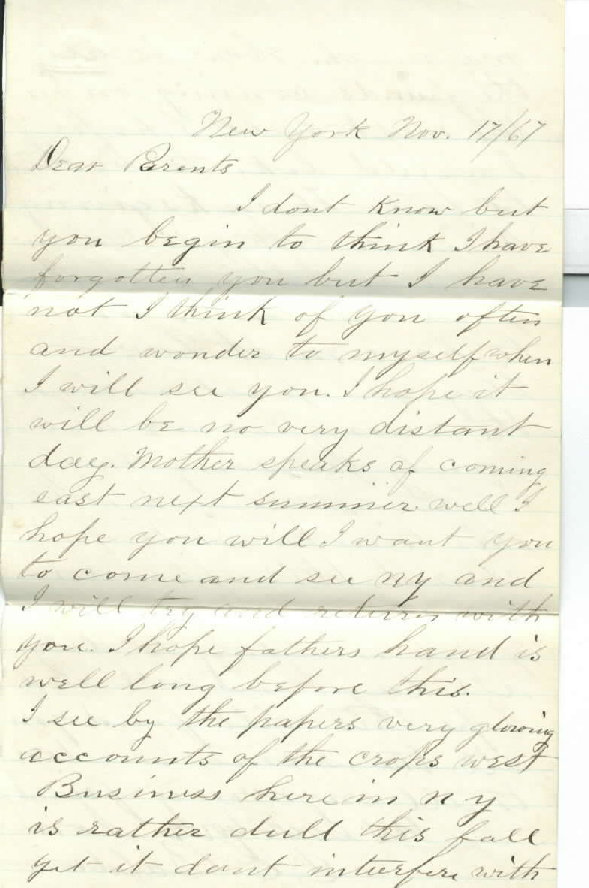 New York Nov. 17/67
Dear Parents
I dont know but
you begin to think I have
forgotten you but I have
not I think of you often
and wonder to myself when
I will see you. I hope it
will be no very distant
day. Mother speaks of coming
east next summer well I
hope you will I want you
to come and see ny and
I will try and return with
you. I hope fathers hand is
well long before this.
I see by the papers very glowing
accounts of the crops west
Business here in N Y
is rather dull this fall
yet it dont interfere with